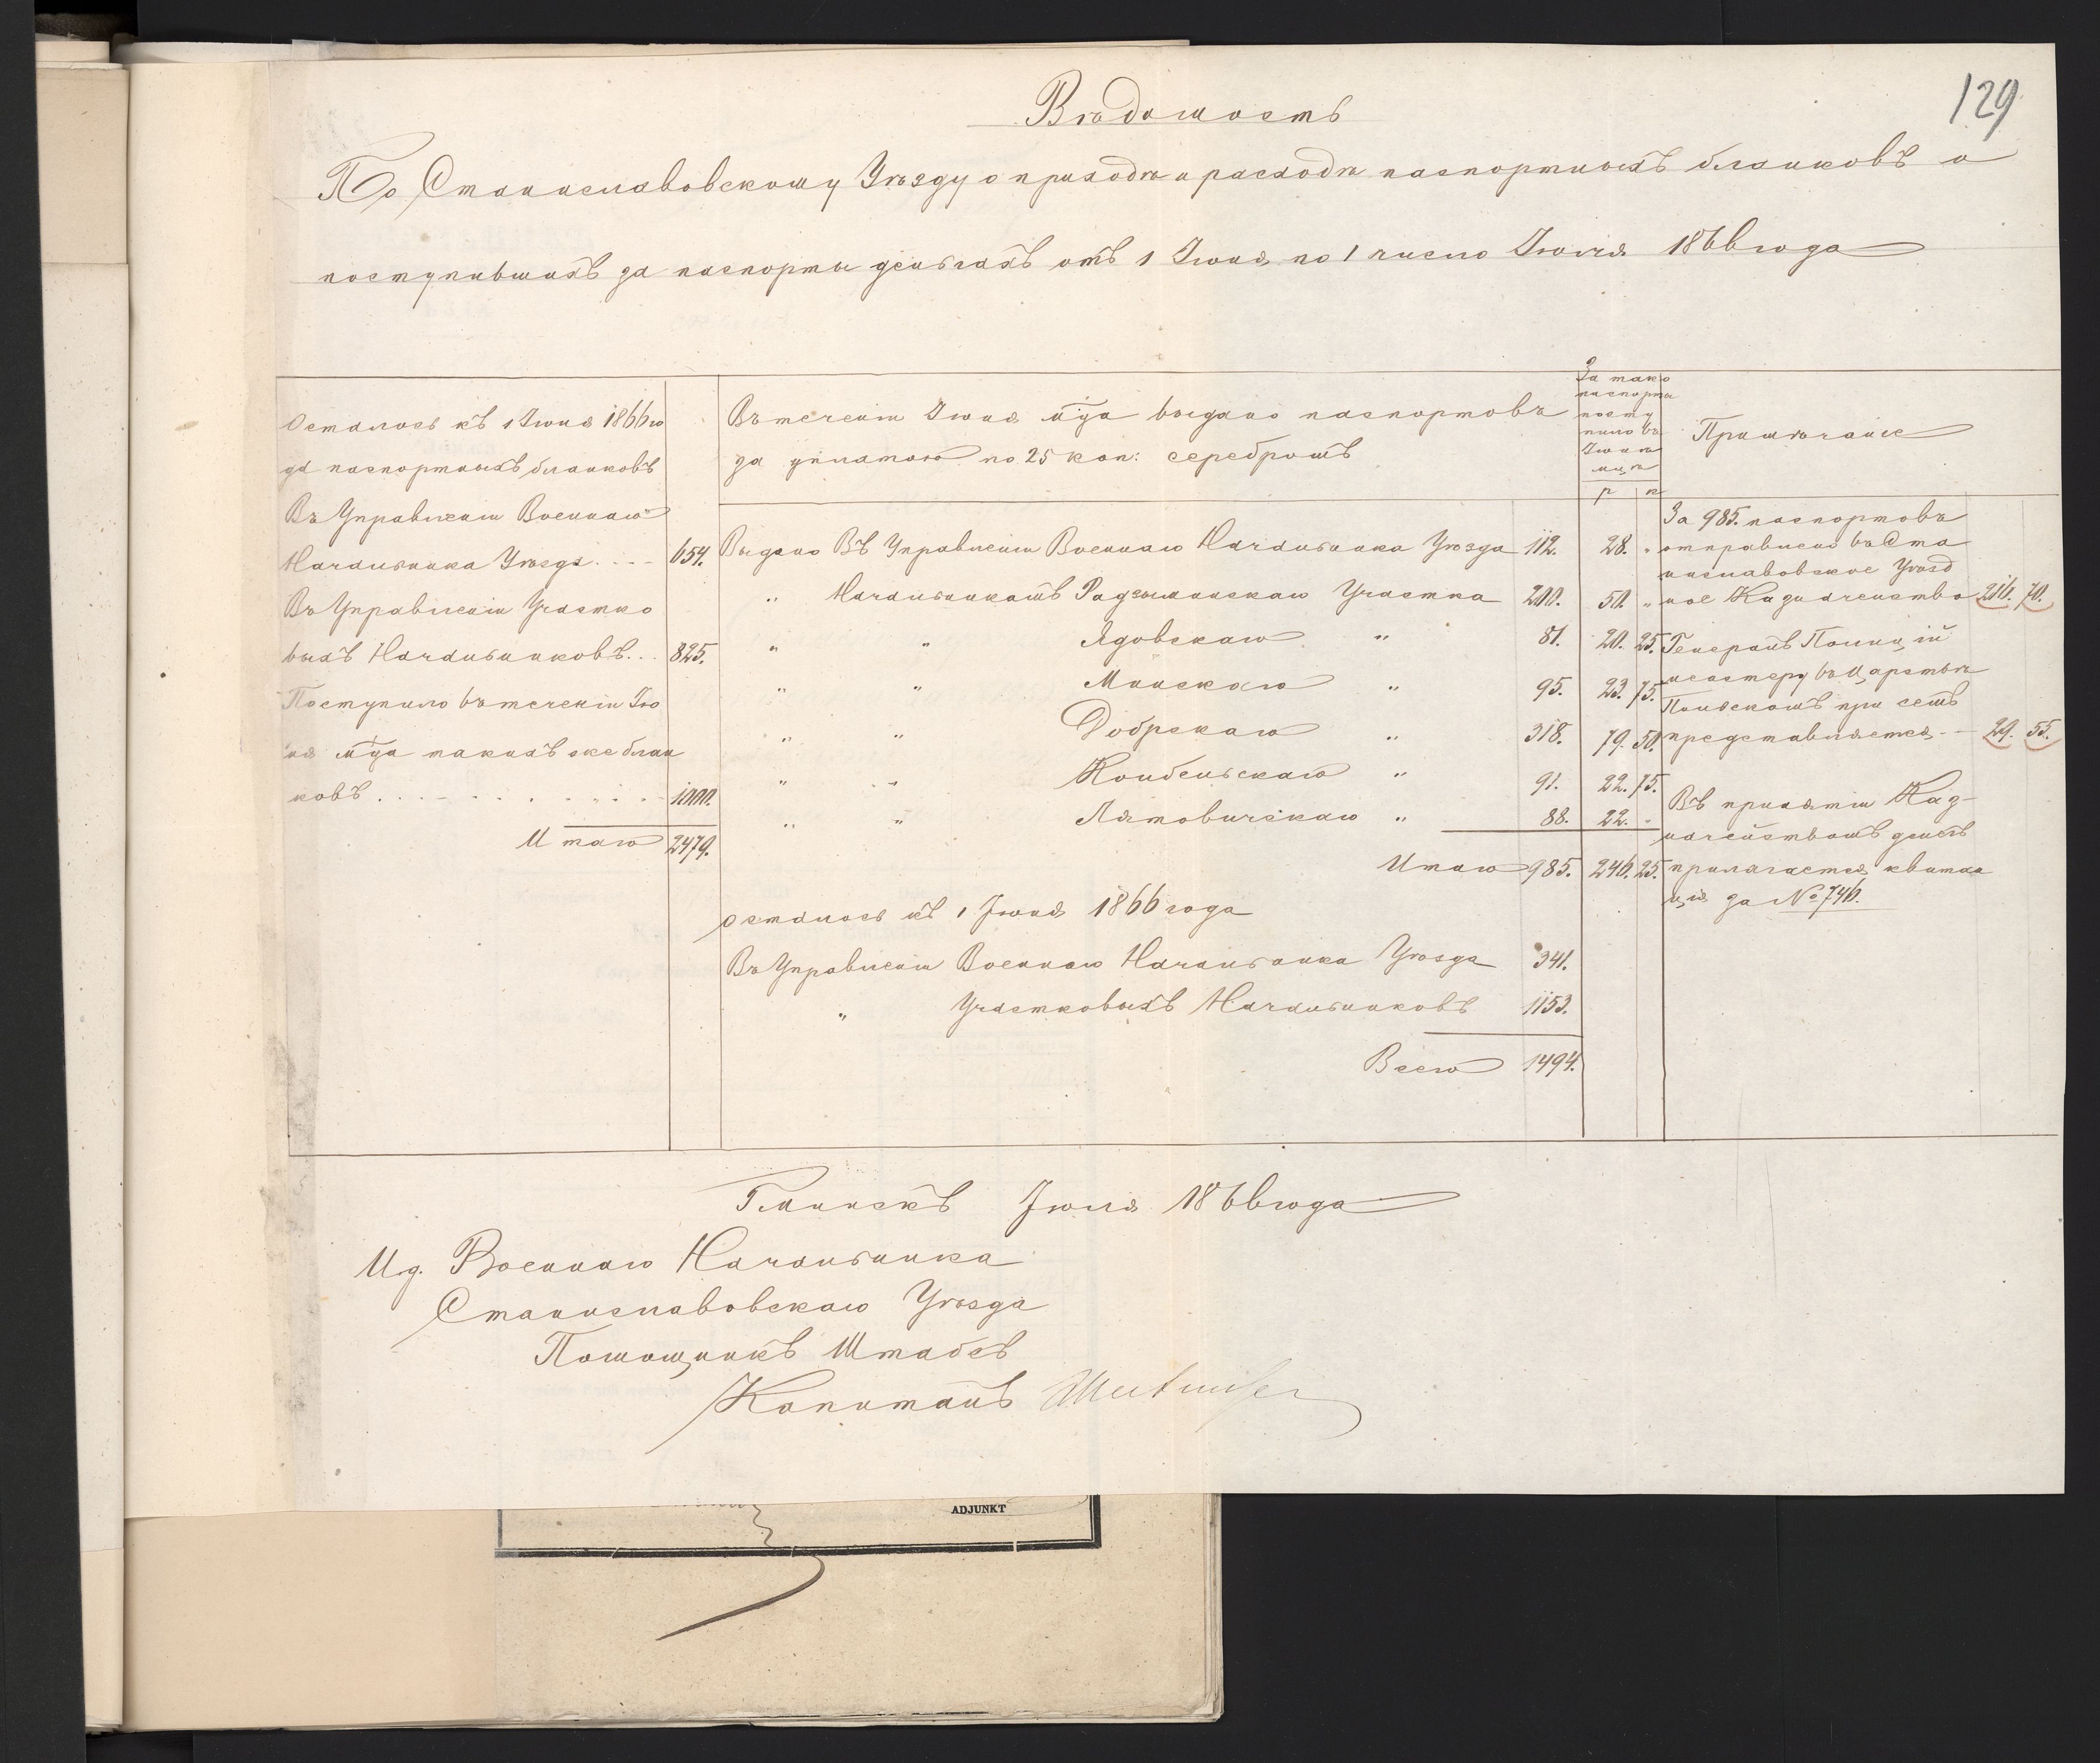 129
Вѣдомость
По Станиславовскому Уѣзду о приходѣ и расходѣ паспортныхъ бланковъ и
поступившихъ за паспорты деньгахъ отъ 1 Іюня по 1 число Іюля 1866 года
Осталось къ 1 Іюня 1866 го
да паспортныхъ бланковъ
Въ Управленіи Военнаго
Начальника Уѣзда . . - - 654.
Въ Управленіи Участко
выхъ Начальниковъ . . . 825.
Поступило въ теченіи Ію
ня м-ца такихъ же блан
ковъ . . . . . . . . 1000.
Итого 2479.
Въ теченіи Іюня м-ца выдано паспортовъ
за уплатою по 25 коп: серебромъ
За тако
паспорты
посту
пило въ
Іюнѣ
м-цѣ
р к
Примѣчаніе
Выдано Въ Управленіи Военнаго Начальника Уѣзда 112. 28. "
" Начальникомъ Радзыминскаго Участка 200. 50. "
" " Ядовскаго " 81. 20. 25.
" " Минскаго " 95. 23. 75.
" " Добрскаго " 318. 79. 50.
" " Колбельскаго " 91. 22. 75.
" " Лятовичскаго " 88. 22. "
Итого 985. 246. 25.
Осталось къ 1 Іюня 1866 года
Въ Управленіи Военнаго Начальника Уѣзда 341.
" Участковыхъ Начальниковъ 1153.
Всего 1494.
За 985. паспортовъ
отправлено въ Ста
ниславовское Уѣзд
ное Казначенство 216. 70.
Генералъ Полицій
мейстеру въ Царствѣ
Польскомъ при семъ
представляется - - 29. 55.
Въ принятіи Каз-
начействомъ денегъ
прилагается квитан
ція за № 746.
Г. Минскъ Іюля 1866 года
И.д. Военнаго Начальника
Станиславовскаго Уѣзда
Помощникъ Штабсъ
Капитанъ
ADJUNKT